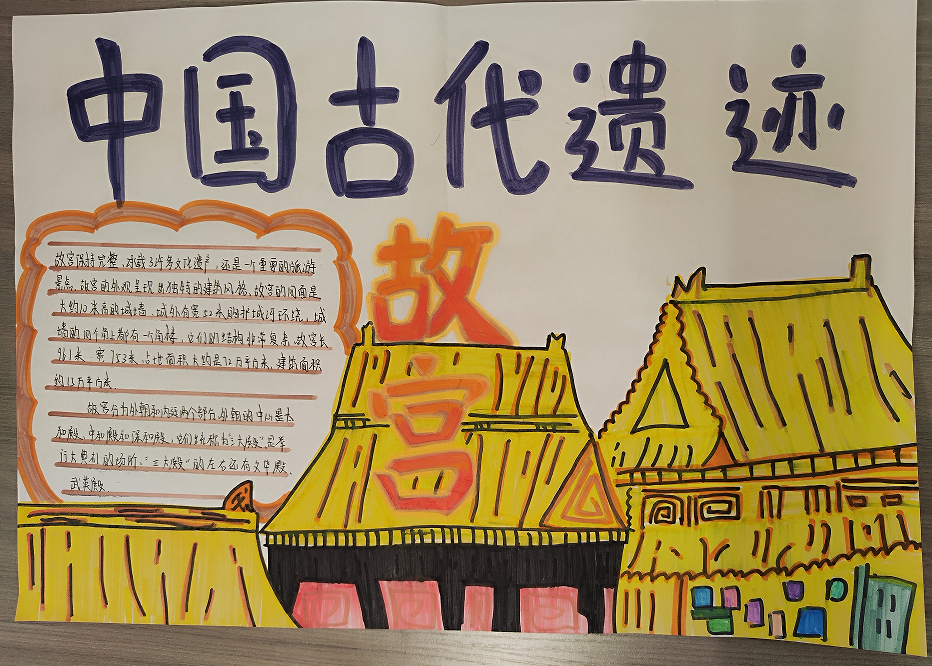 中国古代遗迹
故宫
故宫保持完整,承载了许多文化遗产,还是一个重要的旅游
景点。故宫的外观呈现出独特的建筑风格,故宫的四面是
大约10米高的城墙,城外有宽52米的护城河环绕,城
墙的四个角上都有一个角楼,它们的结构非常复杂。故宫长
961米,宽753米,占地面积大约是72万平方米,建筑面积
约15万平方米。
故宫分为外朝和内廷两个部分,外朝的中心是太
和殿、中和殿和保和殿,它们统称为“三大殿”是举
行大典礼的场所。“三大殿”的左右还有文华殿、
武英殿。